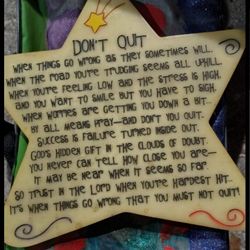 DON'T QUIT
WHEN THINGS GO WRONG AS THEY SOMETIMES WILL,
WHEN THE ROAD YOU'RE TRUDGING SEEMS ALL UPHILL,
WHEN YOU'RE FEELING LOW AND THE STRESS IS HIGH,
AND YOU WANT TO SMILE BUT YOU HAVE TO SIGH,
WHEN WORRIES ARE GETTING YOU DOWN A BIT...
BY ALL MEANS PRAY—AND DON'T YOU QUIT.
SUCCESS IS FAILURE TURNED INSIDE OUT,
GOD'S HIDDEN GIFT IN THE CLOUDS OF DOUBT.
YOU NEVER CAN TELL HOW CLOSE YOU ARE—
IT MAY BE NEAR WHEN IT SEEMS SO FAR.
SO TRUST IN THE LORD WHEN YOU'RE HARDEST HIT...
IT'S WHEN THINGS GO WRONG THAT YOU MUST NOT QUIT!